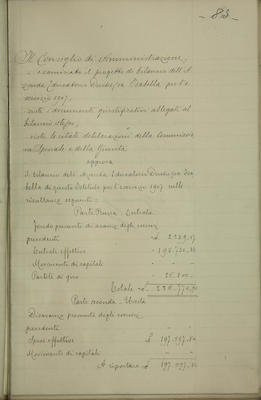 - 83 -
Il Consiglio di Amministrazione,
esaminato il progetto di bilancio dell'A
zienda Educatorio Duchessa Isabella per l'e
sercizio 1907,
visti i documenti giustificativi allegati al
bilancio stesso,
viste le citate deliberazioni della Commissio
ne Speciale e della Giunta
approva
il bilancio dell'Azienda Educatorio Duchessa Isa
bella di questo Istituto per l'esercizio 1907 nelle
risultanze seguenti:
Parte Prima - Entrata
Fondo presunto di avanzo degli eserci
precedenti
Entrate effettive
Movimento di capitali - -
Partite di giro
Totale £
Parte seconda - Uscita
Disavanzo presunto degli eserci
precedenti - -
Spese effettive £
Movimento di capitali - -
A riportare £